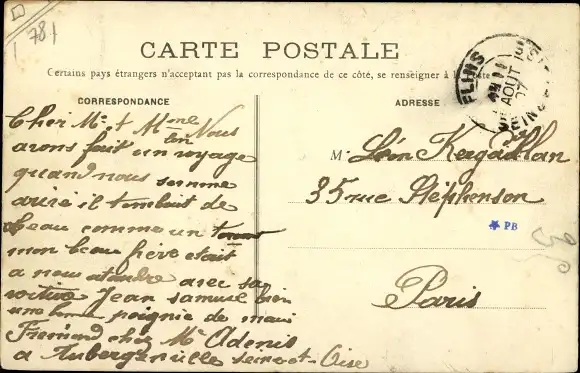 781
CARTE POSTALE
Certains pays étrangers n'acceptant pas la correspondance de ce côté, se renseigner à la
CORRESPONDANCE
ADRESSE
FLINS
AOUT
07
SEINE
Cher Mr + Mme
Nous
avons fait un voyage
quand nous somme
arivé il tombait de
beau comme un
mon beau frère etait
a nous atandre avec sa
voiture Jean samuse bien
une bonne poignie de main
Fremond chez Mr Adenis
a Aubergenville seine-et-Oise
M Léon
35 rue Stéphenson
PB
Paris